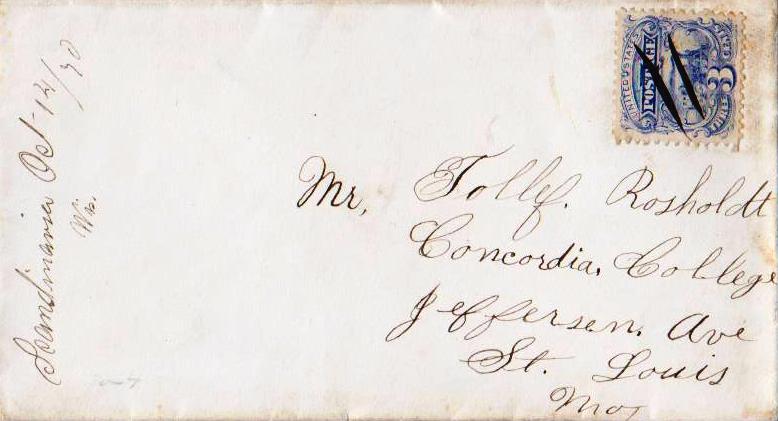 Scandinavia Oct 12/70
Wis.
UNITED STATES
POSTAGE
3
Mr, Tollef. Rosholdt
Concordia, College
Jefferson, Ave
St. Louis
Mo,